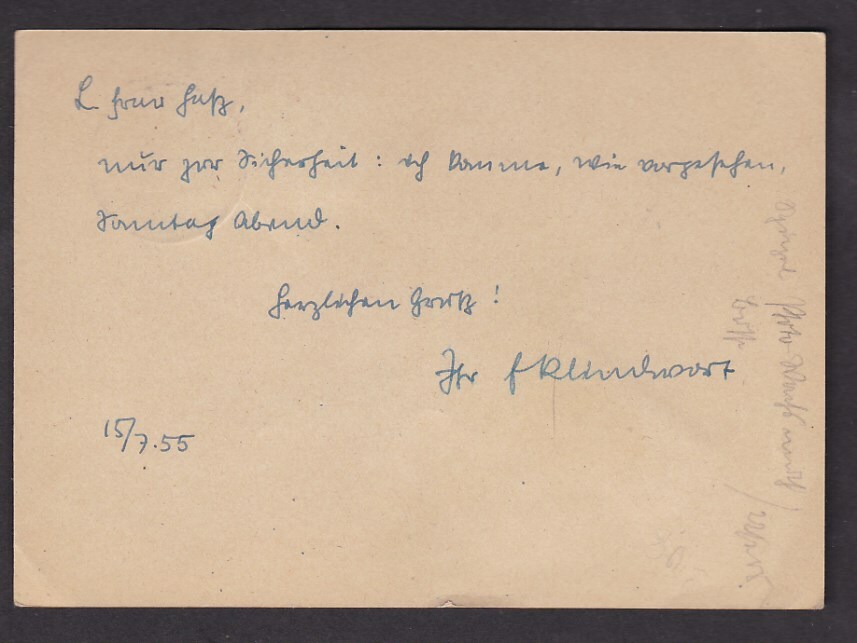 L. Frau Haß,
nur zur Sicherheit: ich komme, wie vorgesehen,
Sonntag Abend.
Herzlichen Gruß!
Ihr F Klindwort
15/7.55